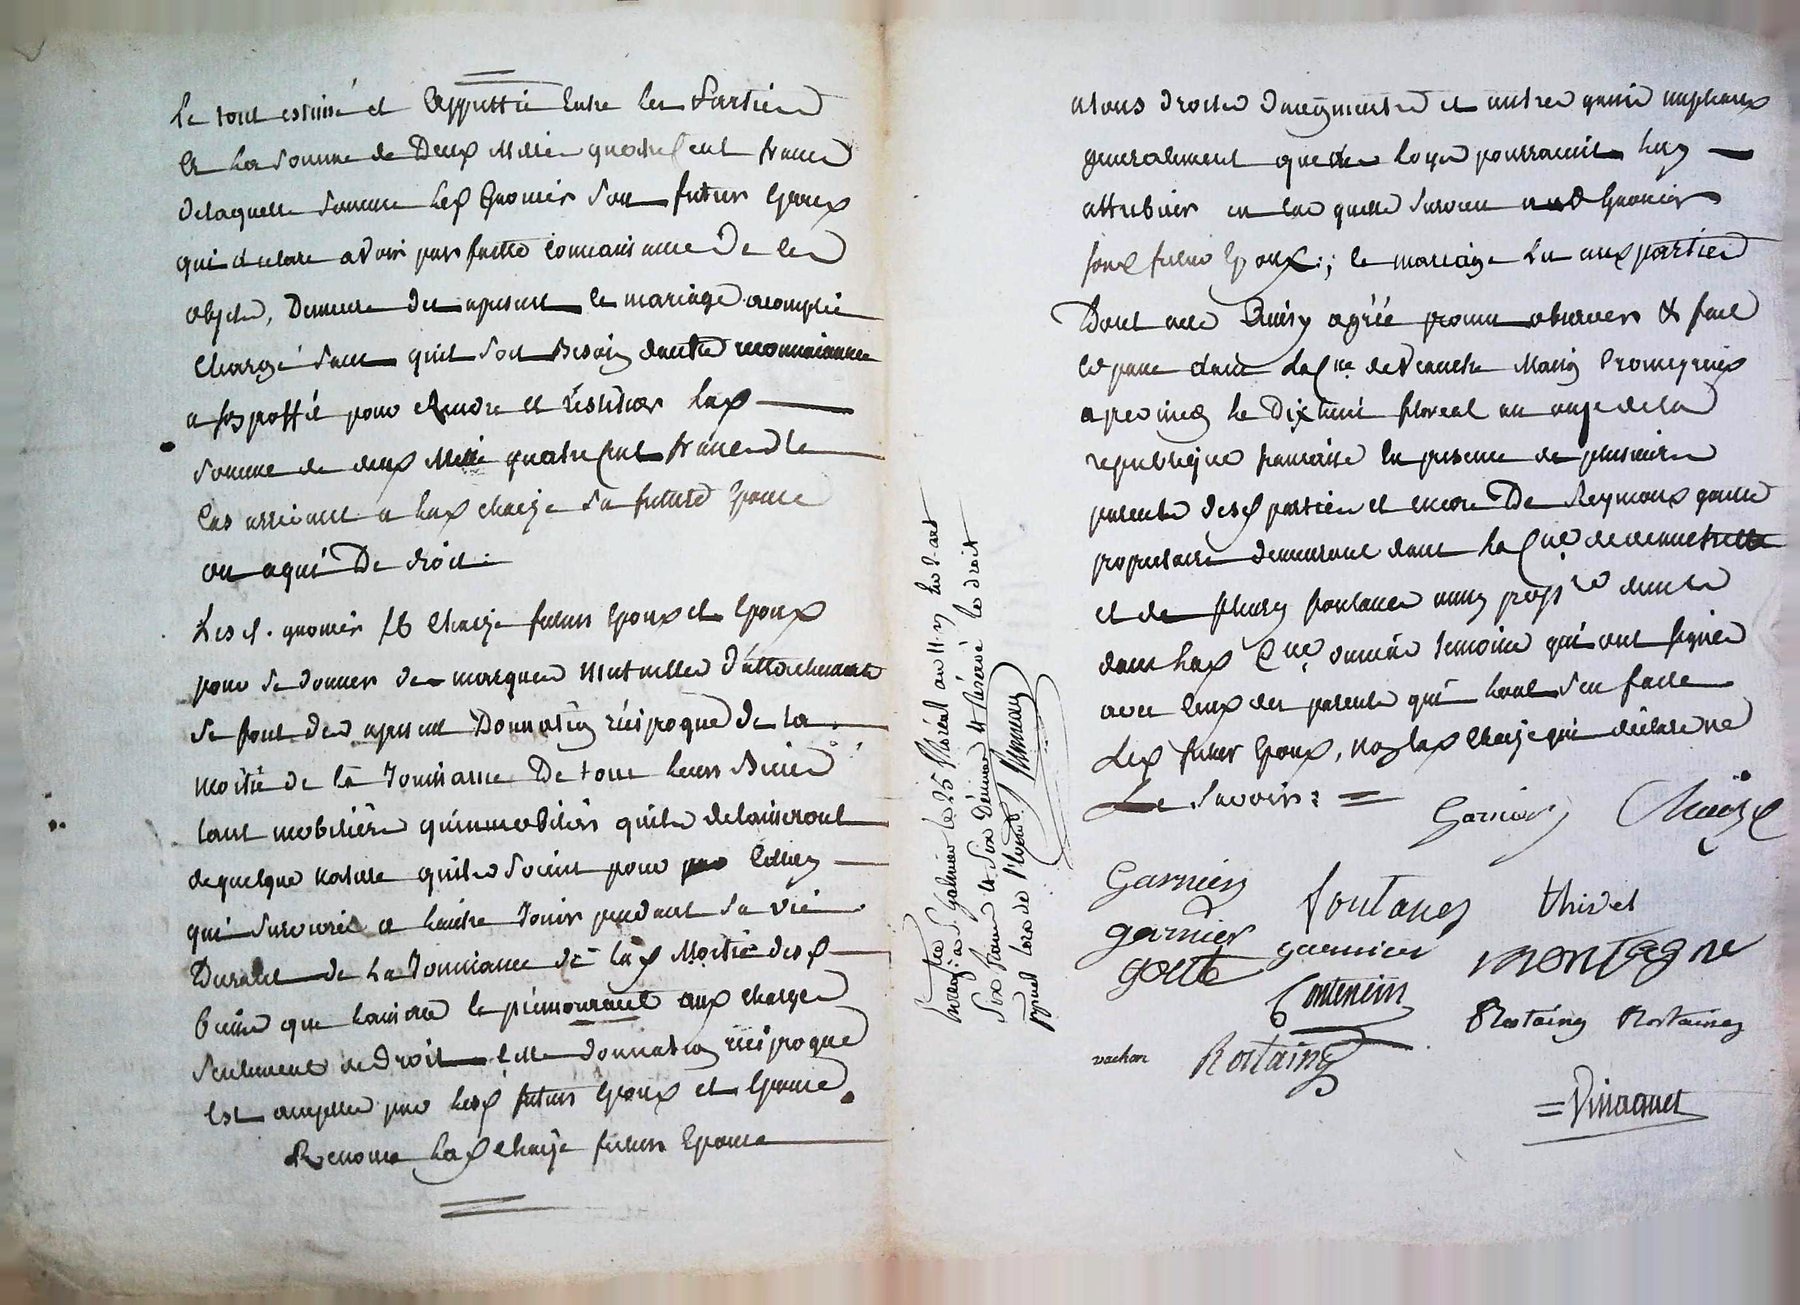 Le tout estimé et appretié entre les parties
a la somme de deux mille quatre cent francs
de laquelle somme led garnier son futur epoux
qui declare avoir parfaitte connaissance de ces
objets, demeure des apresent le mariage acompli
chargé sans quil soit besoin dautre reconnaissance
a pour rendre et restituer lad
somme de deux mille quatre cent francs le
cas arrivant a lad chaize sa future epouse
ou a qui de droit.
Lesd. garnier et chaize futurs epoux et epoux
pour se donner des marques mutuelles d'attachement
se font des apresent donnation réciproque de la
moitié de la jouissance de tous leurs biens
tant mobiliers qu'immobiliers quils delaisseront
de quelque nature quils soient pour celluy
qui survivra a lautre jouir pendant sa vie
durant de la jouissance de lad moitié desd
biens que laissera le premourant aux charges
seulement de droit cette donnation réciproque
est acceptée par lesd futurs epoux et epouse
Renonce lad chaize future epouse
a tous droits daugments et autres gains nuptiaux
generalement que les loix pourraient luy
attribuer en cas quelle survive aud garnier
sond futur epoux; le mariage lu aux parties
Dont acte ainsy agréé promis observer & fait
et passé dans la Cne de Veauche
le dix huit floreal an onze de la
republique francaise en presence de plusieurs
parents desd parties et encore de Reymond goutte
propriétaire demeurant dans la Cne de
et de fleury fontanes aussy propre dans la
dans lad Cne temoins qui ont signés
avec ceux des parents qui lont sçu faire
led futur epoux, non lad chaize qui déclare ne
Le savoir =
garnier Chaize
Garnier fontanes thivet
garnier garnier montagne
goutte Contenein
Rostaing Rostaing
vachon Rostaing
= Vinagnet
Enregistré à St Galmier le 25 floréal an 11
six francs & six décimes & réservé les droits